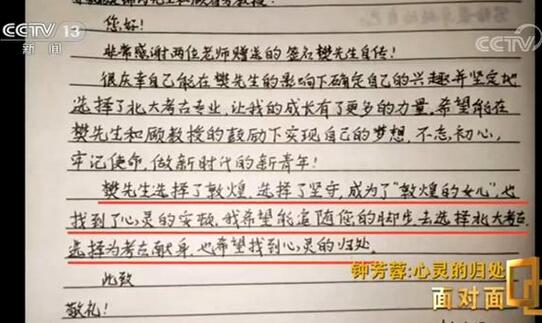 CCTV 13
新闻
CCTV
您好!
非常感谢两位老师赠送的签名樊先生自传!
很庆幸自己能在樊先生的影响下确定自己的兴趣并坚定地
选择了北大考古专业,让我的成长有了更多的力量。希望能在
樊先生和顾教授的鼓励下实现自己的梦想,不忘初心,
牢记使命,做新时代的新青年!
樊先生选择了敦煌,选择了坚守,成为了“敦煌的女儿”,也
找到了心灵的安顿,我希望能追随您的脚步,去选择北大考古,
选择为考古献身,也希望找到心灵的归处。
此致
敬礼!
钟芳蓉:心灵的归处
面对面